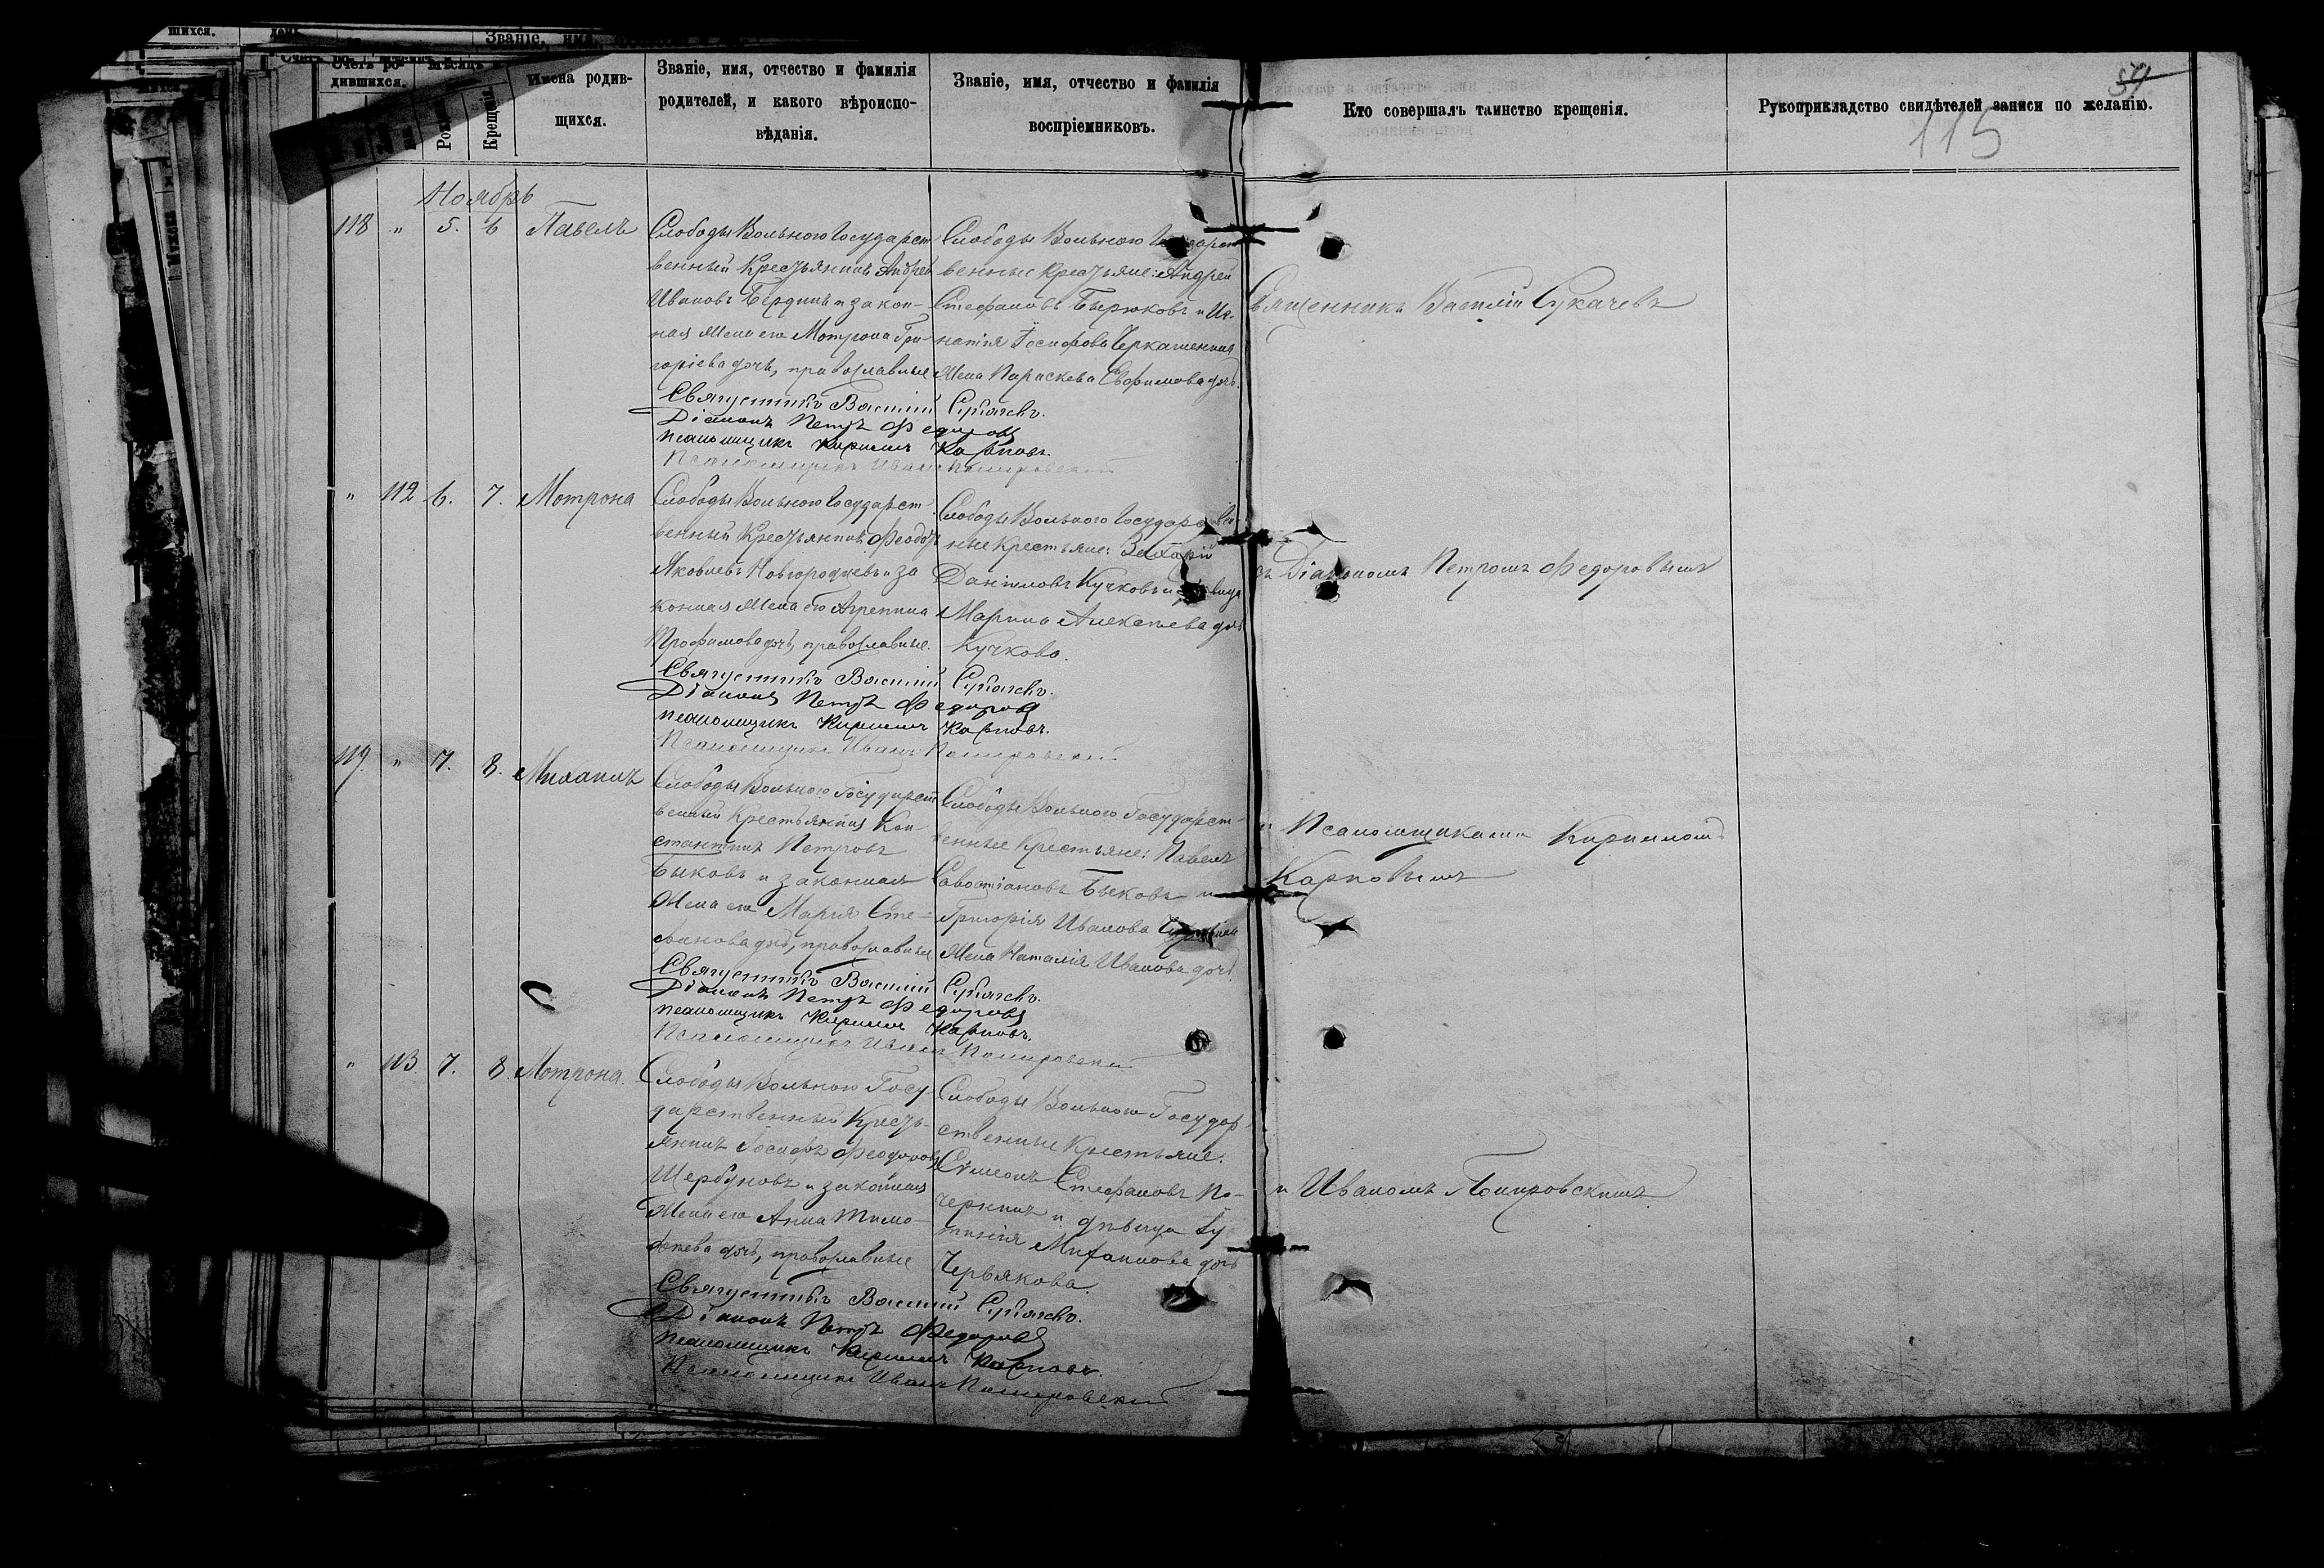 шихся.
день
Званіе, имя,
Счетъ ро-
дившихся.
Мѣсяцъ
Крещенія
Имена родив-
щихся.
Званіе, имя, отчество и фамилія
родителей, и какого вѣроиспо-
вѣданія.
Званіе, имя, отчество и фамилія
воспріемниковъ.
Кто совершалъ таинство крещенія.
Рукоприкладство свидѣтелей записи по желанію.
115
Ноябрь
118 " 5. 6 Павелъ
Слободы Вольного Государст
венный Крестьянинъ Андрей
Ивановъ и закон-
ная жена его Мотрона Гри-
горіева дочь, православные
Слободы Вольного Государст
венные крестьяне: Андрей
Стефановъ Бирюковъ и Иг-
натія Іосифова Черкашенина
жена Параскева Евфимова дочь.
Священникъ Василій Сукачевъ
Священникъ Василій Сукачевъ.
Діаконъ Петръ Федоровъ
псаломщикъ Кириллъ Карповъ.
Псаломщикъ Иванъ
" 112 6. 7. Мотрона
Слободы Вольного Государст-
венный Крестьянинъ Феодоръ
Яковлевъ Новгородцевъ и за
конная жена его Агрепина
Трофимова дочь, православные.
Слободы Вольного Государствен-
ные крестьяне: Захарій
Даніиловъ Кучковъ и дѣвица
Марина Алексѣева дочь
Кучкова.
съ Діакономъ Петромъ Федоровымъ
Священникъ Василій Сукачевъ.
Діаконъ Петръ Федоровъ
псаломщикъ Кириллъ Карповъ.
Псаломщикъ Иванъ
119. " 7. 8. Михаилъ
Слободы Вольного Государст
венный Крестьянинъ Кон-
стантинъ Петровъ
Быковъ и законная
жена его Марія Сте-
фанова дочь, православные
Слободы Вольного Государст-
венные Крестьяне: Павелъ
Савостіановъ Быковъ и
Григорія Иванова
жена Наталія Иванова дочь
и Псаломщиками Кирилломъ
Карповымъ
Священникъ Василій Сукачевъ.
Діаконъ Петръ Федоровъ
псаломщикъ Кириллъ Карповъ.
Псаломщикъ Иванъ
" 113 7. 8. Мотрона.
Слободы Вольного Госу-
дарственный Кресть-
янинъ Іосифъ Феодоровъ
Щербуновъ и законная
жена его Анна Тимо-
фѣева дочь, православные
Слободы Вольного Государ-
ственные Крестьяне:
Сѵмеонъ Стефановъ По-
черкинъ и дѣвица Іу-
Михаилова дочь
Червякова.
и Иваномъ
Священникъ Василій Сукачевъ.
Діаконъ Петръ Федоровъ
псаломщикъ Кириллъ Карповъ.
Псаломщикъ Иванъ